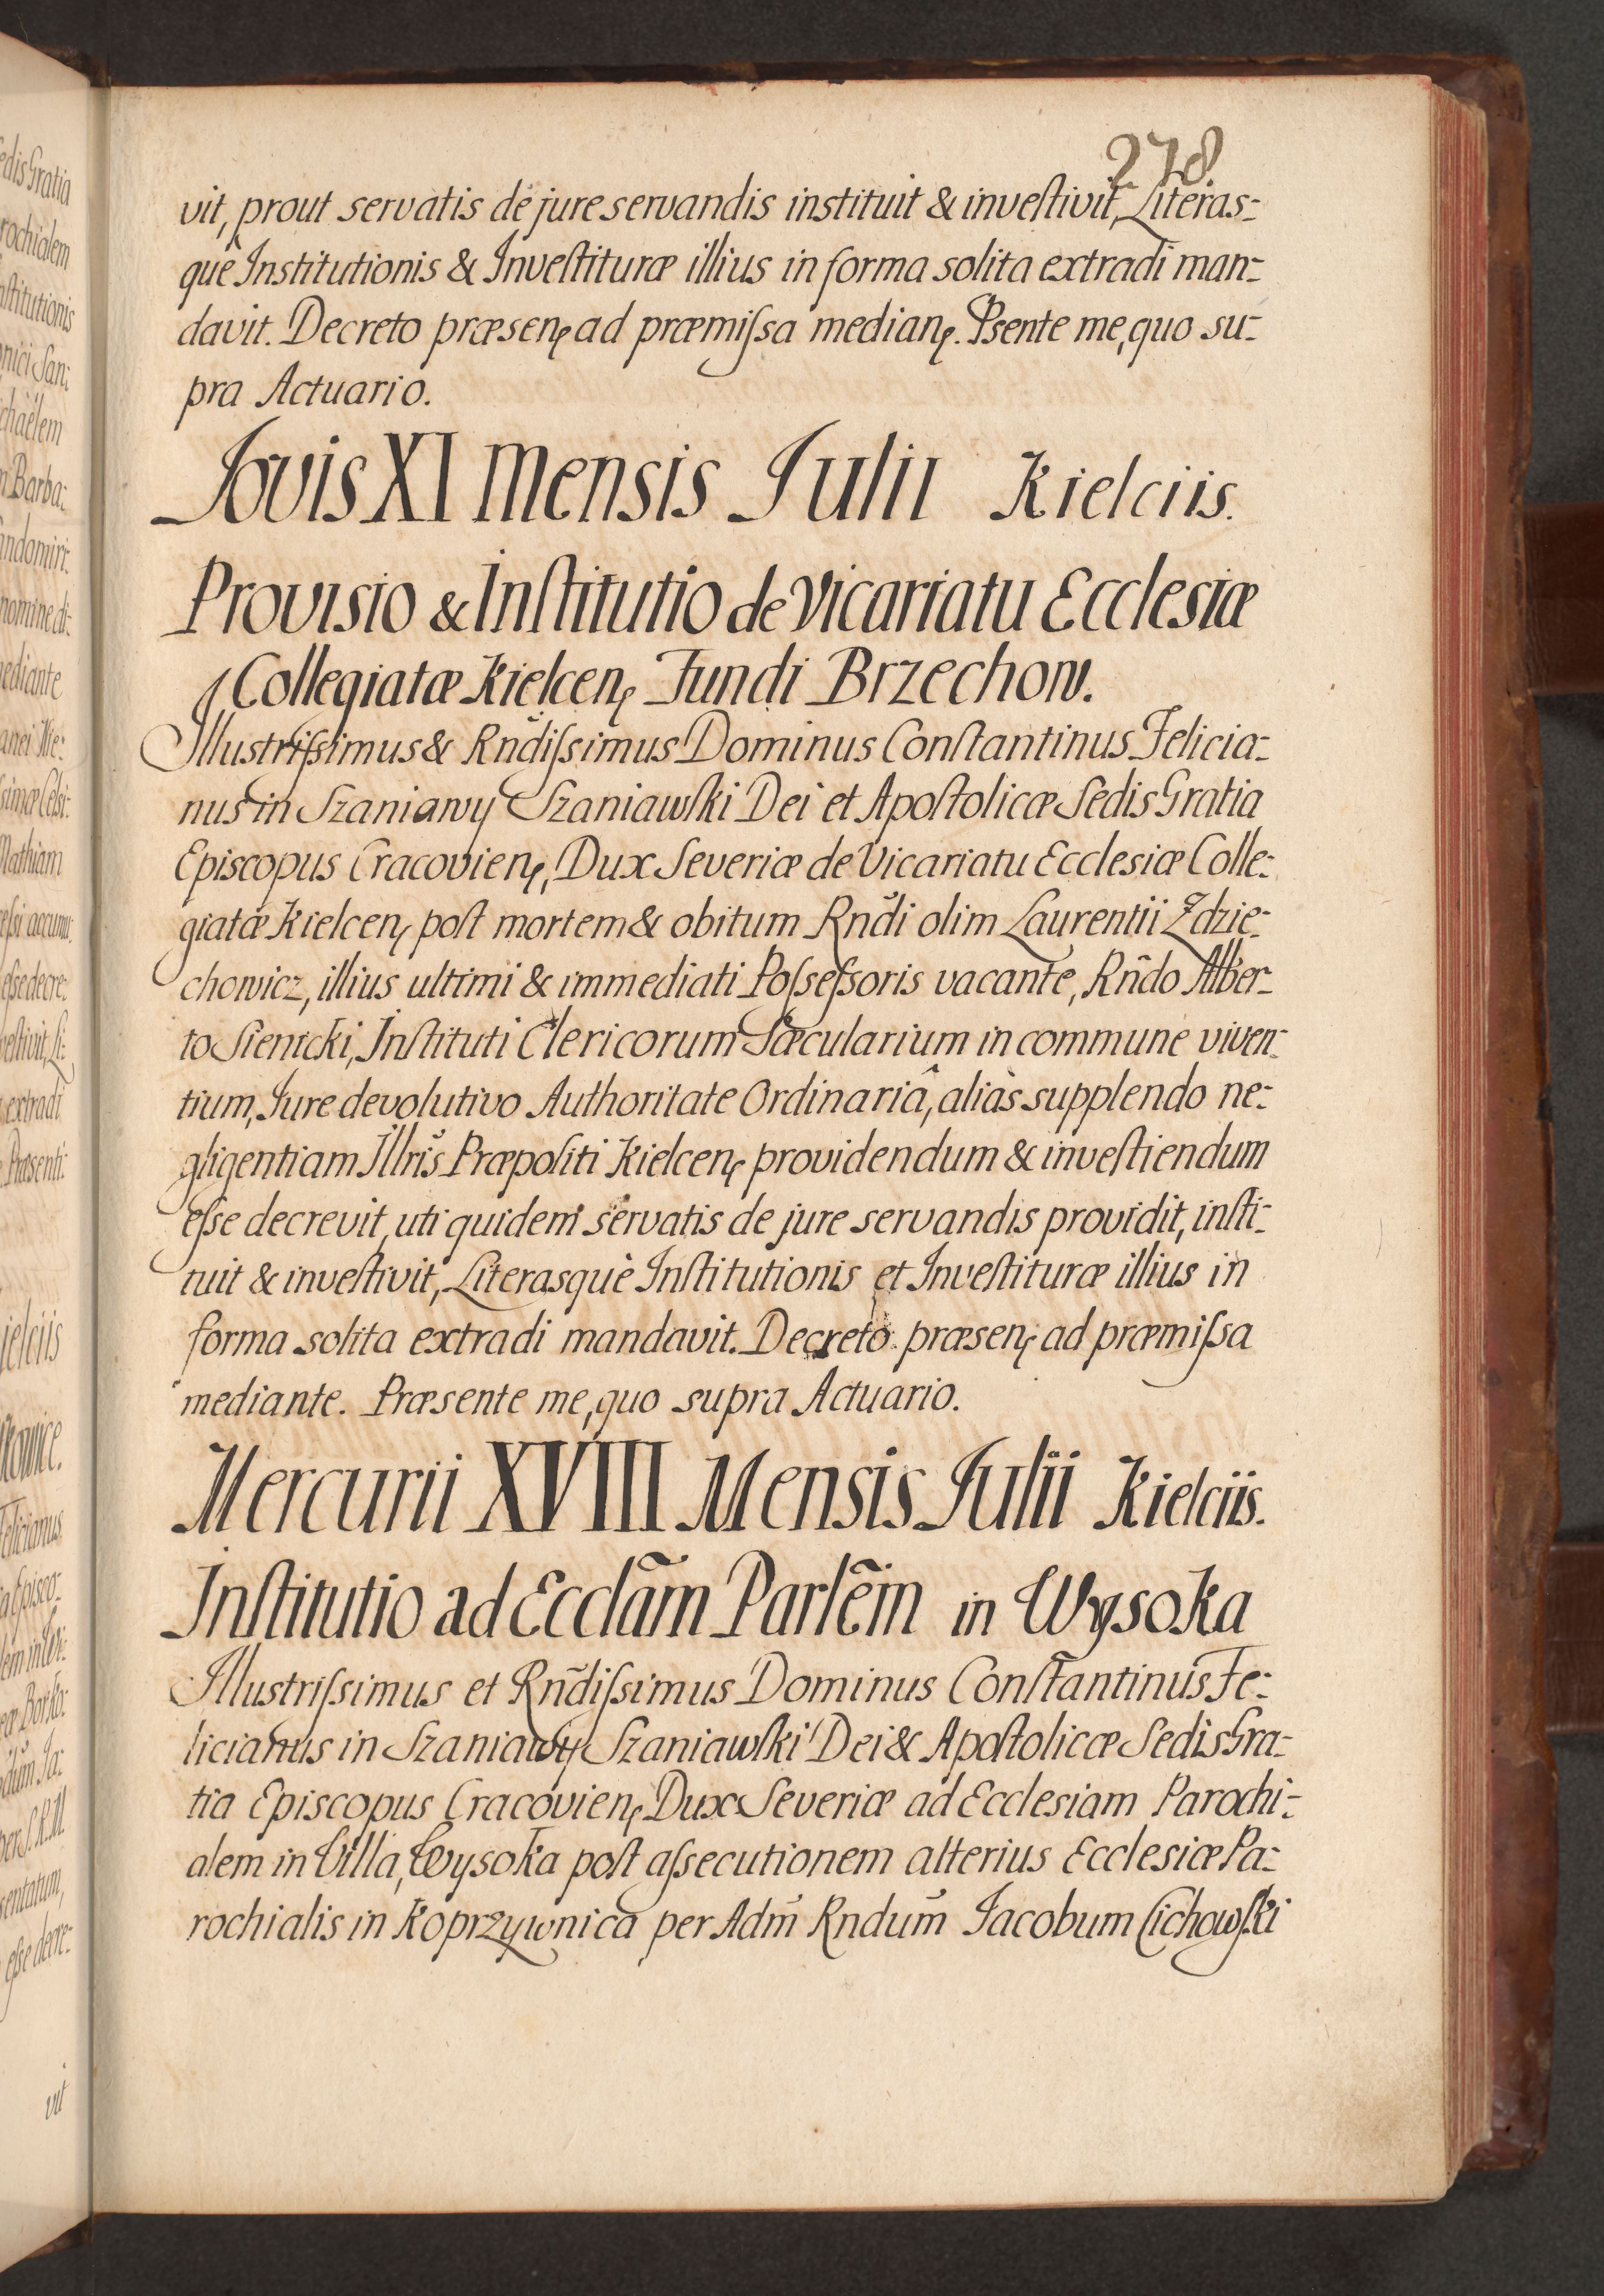 278
vit, prout servatis de jure servandis instituit & investivit, Literas-
què Institutionis & Investituræ illius in forma solita extradi man-
davit. Decreto præsenꝭ ad præmissa medianꝭ. Psente me, quo su-
pra Actuario.
Jovis XI Mensis Julii Kielciis.
Provisio & Institutio de Vicariatu Ecclesiæ
Collegiatæ Kielcenꝭ Fundi Brzechow.
Illustrissimus & Rndissimus Dominus Constantinus Felicia-
nus in Szaniawy Szaniawski Dei et Apostolicæ Sedis Gratia
Episcopus Cracovienꝭ, Dux Severiæ de Vicariatu Ecclesiæ Colle-
giatæ Kielcenꝭ post mortem & obitum Rndi olim Laurentii Zdzie-
chowicz, illius ultimi & immediati Possessoris vacante, Rñdo Alber-
to Sienicki, Instituti Clericorum Sæcularium in commune viven-
tium, Jure devolutivo Authoritate Ordinariâ, aliàs supplendo ne-
gligentiam Illris Præpositi Kielcenꝭ providendum & investiendum
esse decrevit, uti quidem servatis de jure servandis providit, insti-
tuit & investivit, Literasquè Institutionis et Investituræ illius in
forma solita extradi mandavit. Decreto præsenꝭ ad præmissa
mediante. Præsente me, quo supra Actuario.
Mercurii XVIII Mensis Julii Kielciis.
Institutio ad Ecclãm Parlẽm in Wysoka
Illustrissimus et Rñdissimus Dominus Constantinus Fe-
licianus in Szaniawy Szaniawski Dei & Apostolicæ Sedis Gra-
tia Episcopus Cracovienꝭ Dux Severiæ ad Ecclesiam Parochi-
alem in Villa, Wysoka post assecutionem alterius Ecclesiæ Pa-
rochialis in Koprzywnica per Adm̃ Rndum̃ Jacobum Cichowski